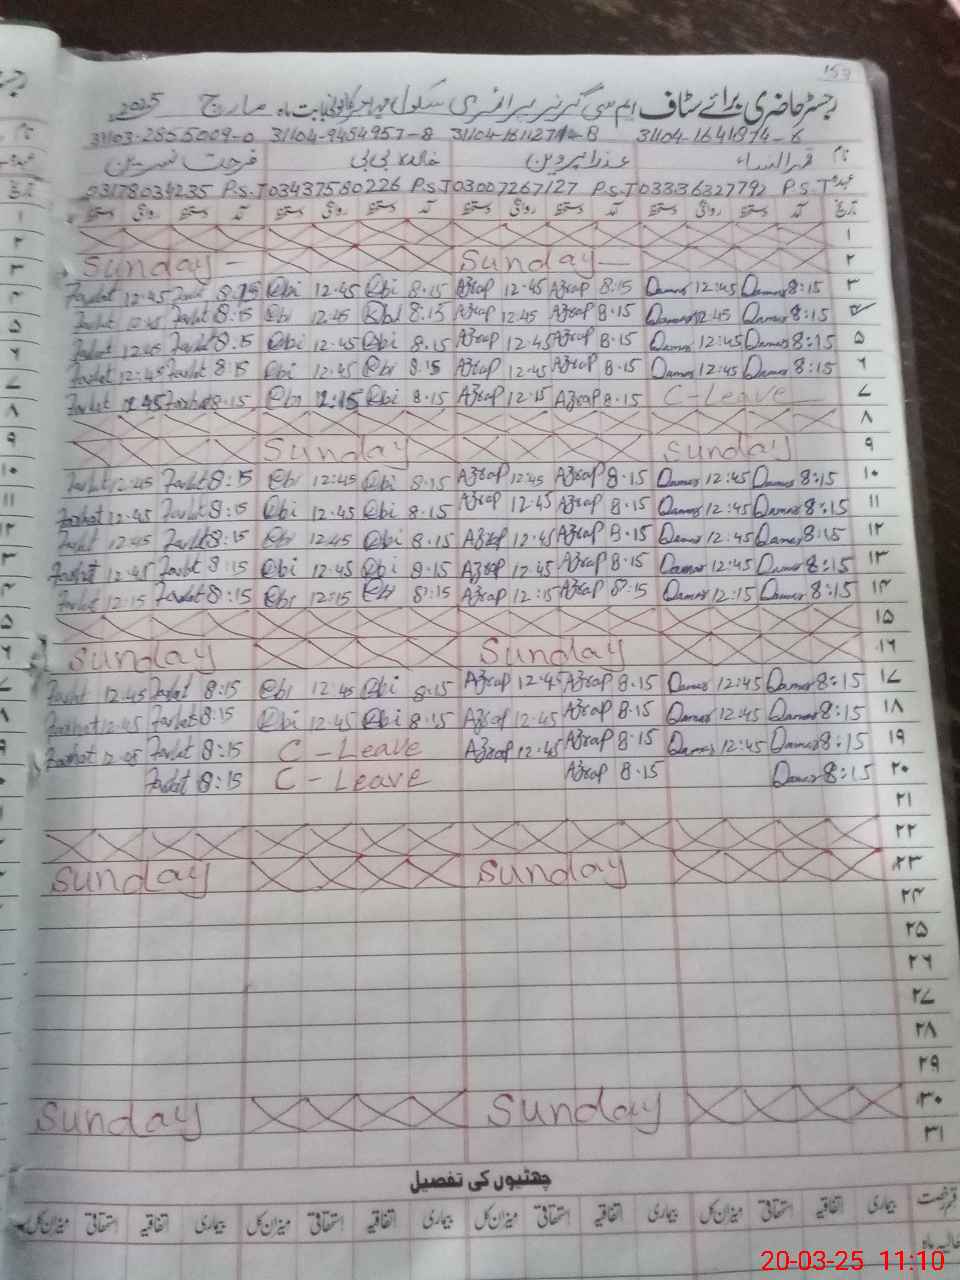 157
رجسٹر حاضری برائے سٹاف ایم سی گرلز پرائمری سکول بابت ماہ مارچ 2025
31104-1641974-6 31104-1611271-8 31104-9454957-8 31103-2805009-0
نام قمر النساء عذرا پروین خالدہ بی بی فرحت نسرین
عہدہ P.S.T 03336327792 P.S.T 03007267127 P.S.T 03437580226 P.S.T 03178034235
تاریخ آمد دستخط روانگی دستخط آمد دستخط روانگی دستخط آمد دستخط روانگی دستخط آمد دستخط روانگی دستخط
۱
۲ Sunday Sunday
۳ 8:15 Qamar 12:45 Qamar 8.15 Azrap 12.45 Azrap 8.15 Qbi 12.45 Qbi 8.15 Farhat 12.45 Farhat
۴ 8:15 Qamar 12.45 Qamar 8.15 Azrap 12.45 Azrap 8.15 Qbi 12.45 Qbi 8:15 Farhat 12.45 Farhat
۵ 8:15 Qamar 12:45 Qamar 8.15 Azrap 12.45 Azrap 8.15 Qbi 12.45 Qbi 8:15 Farhat 12.45 Farhat
۶ 8:15 Qamar 12:45 Qamar 8.15 Azrap 12.45 Azrap 8:15 Qbi 12.45 Qbi 8:15 Farhat 12:45 Farhat
۷ C-Leave 8.15 Azrap 12.15 Azrap 8.15 Qbi 12:15 Qbi 8.15 Farhat Farhat
۸
۹ Sunday Sunday
۱۰ 8:15 Qamar 12:45 Qamar 8.15 Azrap 12:45 Azrap 8.15 Qbi 12:45 Qbi 8:15 Farhat 12.45 Farhat
۱۱ 8:15 Qamar 12:45 Qamar 8.15 Azrap 12.45 Azrap 8.15 Qbi 12.45 Qbi 8:15 Farhat 12.45 Farhat
۱۲ 8:15 Qamar 12:45 Qamar 8.15 Azrap 12.45 Azrap 8.15 Qbi 12.45 Qbi 8:15 Farhat 12.45 Farhat
۱۳ 8:15 Qamar 12:45 Qamar 8.15 Azrap 12.45 Azrap 8.15 Qbi 12.45 Qbi 8:15 Farhat 12.45 Farhat
۱۴ 8:15 Qamar 12:15 Qamar 8:15 Azrap 12:15 Azrap 8:15 Qbi 12:15 Qbi 8:15 Farhat 12.15 Farhat
۱۵
۱۶ Sunday Sunday
۱۷ 8:15 Qamar 12:45 Qamar 8.15 Azrap 12.45 Azrap 8.15 Qbi 12.45 Qbi 8:15 Farhat 12.45 Farhat
۱۸ 8:15 Qamar 12:45 Qamar 8.15 Azrap 12.45 Azrap 8.15 Qbi 12.45 Qbi 8:15 Farhat 12.45 Farhat
۱۹ 8:15 Qamar 12:45 Qamar 8.15 Azrap 12.45 Azrap C-Leave 8:15 Farhat Farhat
۲۰ 8:15 Qamar 8.15 Azrap C-Leave 8:15 Farhat
۲۱
۲۲
۲۳ Sunday Sunday
۲۴
۲۵
۲۶
۲۷
۲۸
۲۹
۳۰ Sunday Sunday
۳۱
چھٹیوں کی تفصیل
قسم رخصت بیماری اتفاقیہ استحقاقی میزان کل بیماری اتفاقیہ استحقاقی میزان کل بیماری اتفاقیہ استحقاقی میزان کل بیماری اتفاقیہ استحقاقی میزان کل
حالیہ ماہ
20-03-25 11:10